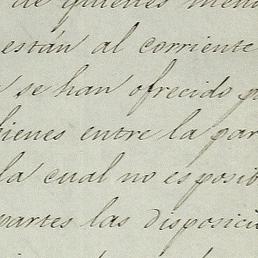 de quienes men
están al corriente
se han ofrecido p
bienes entre la par
la cual no es posib
partes las disposici